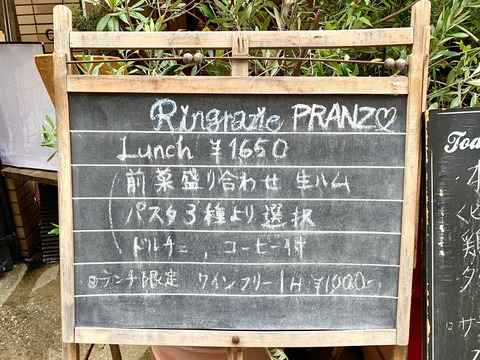 Ringrazie PRANZO♡
Lunch ¥1650
前菜盛り合わせ 生ハム
パスタ3種より選択
ドルチェ、コーヒー付
◎ランチ限定 ワインフリー1H ¥1000-
Toda